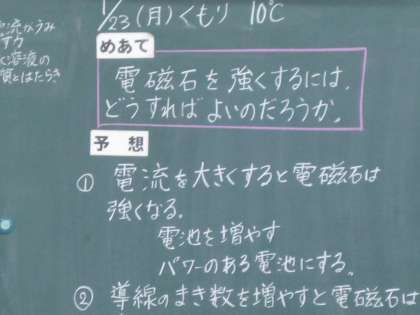 1/23(月)くもり 10℃
めあて
電磁石を強くするには、
どうすればよいのだろうか。
予想
① 電流を大きくすると電磁石は
強くなる。
電池を増やす
パワーのある電池にする。
② 導線のまき数を増やすと電磁石は
流がうみ
水溶液の
質とはたらき